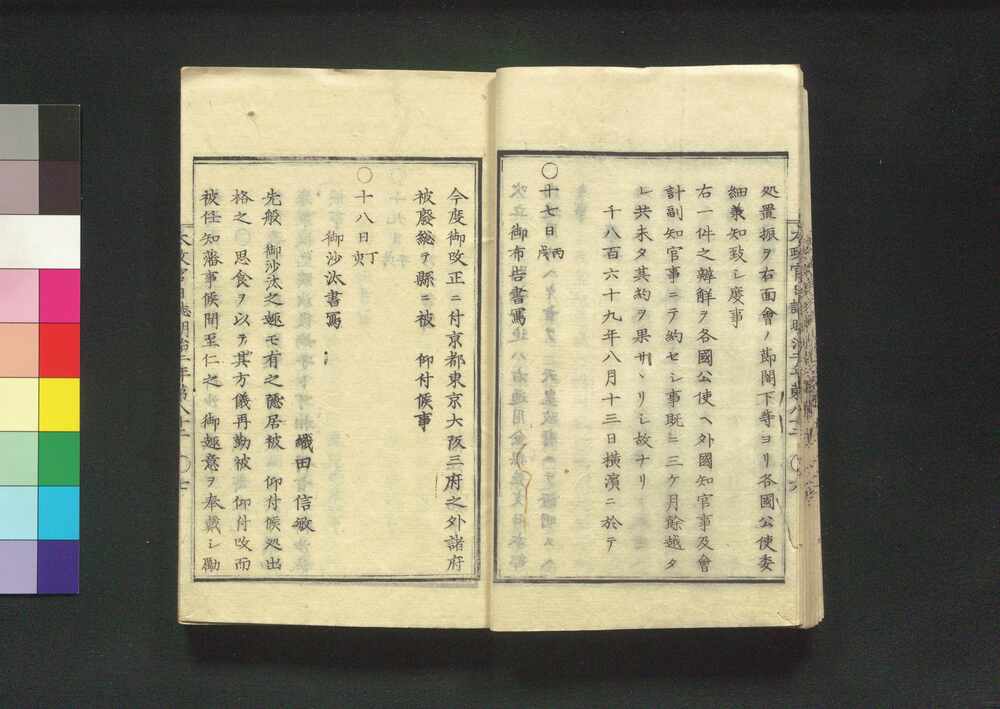 処置振ヲ右面會ノ節閣下等ヨリ各國公使委
細兼知致シ度事
右一件之辨解ヲ各國公使ヘ外國知官事及會
計副知官事ニテ約セシ事既ニ三ケ月餘越タ
レ共未タ其約ヲ果サヽリシ故ナリ
千八百六十九年八月十三日横濱ニ於テ
〇十七日丙戌
御布告書寫
今度御改正ニ付京都東京大阪三府之外諸府
被廢總テ縣ニ被 仰付候事
〇十八日丁亥
御沙汰書寫
織田信敏
先般 御沙汰之趣モ有之隱居被 仰付候処出
格之 思食ヲ以テ其方儀再勤被 仰付改而
被任知藩事候間至仁之御趣意ヲ奉戴シ勵